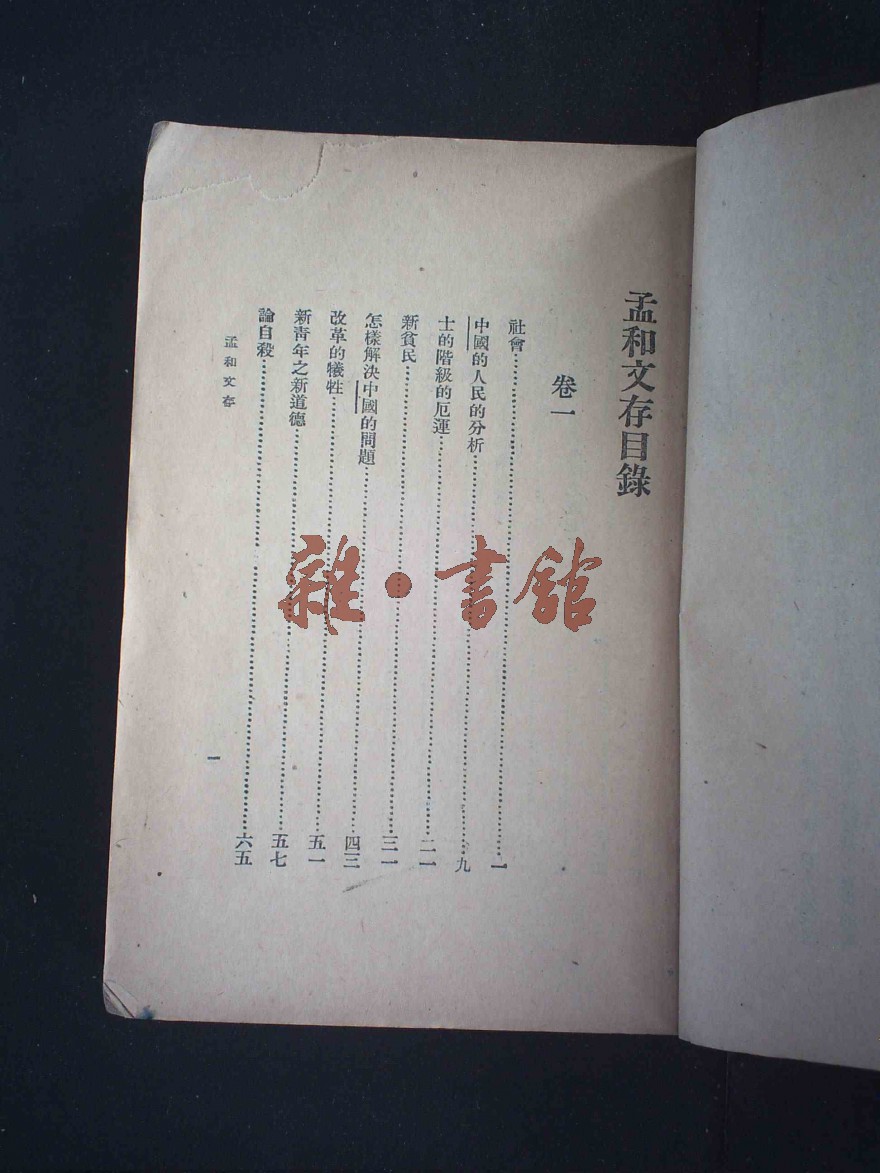 孟和文存目錄
卷一
社會……一
中國的人民的分析……九
士的階級的厄運……二一
新貧民……三一
怎樣解決中國的問題……四三
改革的犧牲……五一
新靑年之新道德……五七
論自殺……六五
孟和文存
一
雜·書館